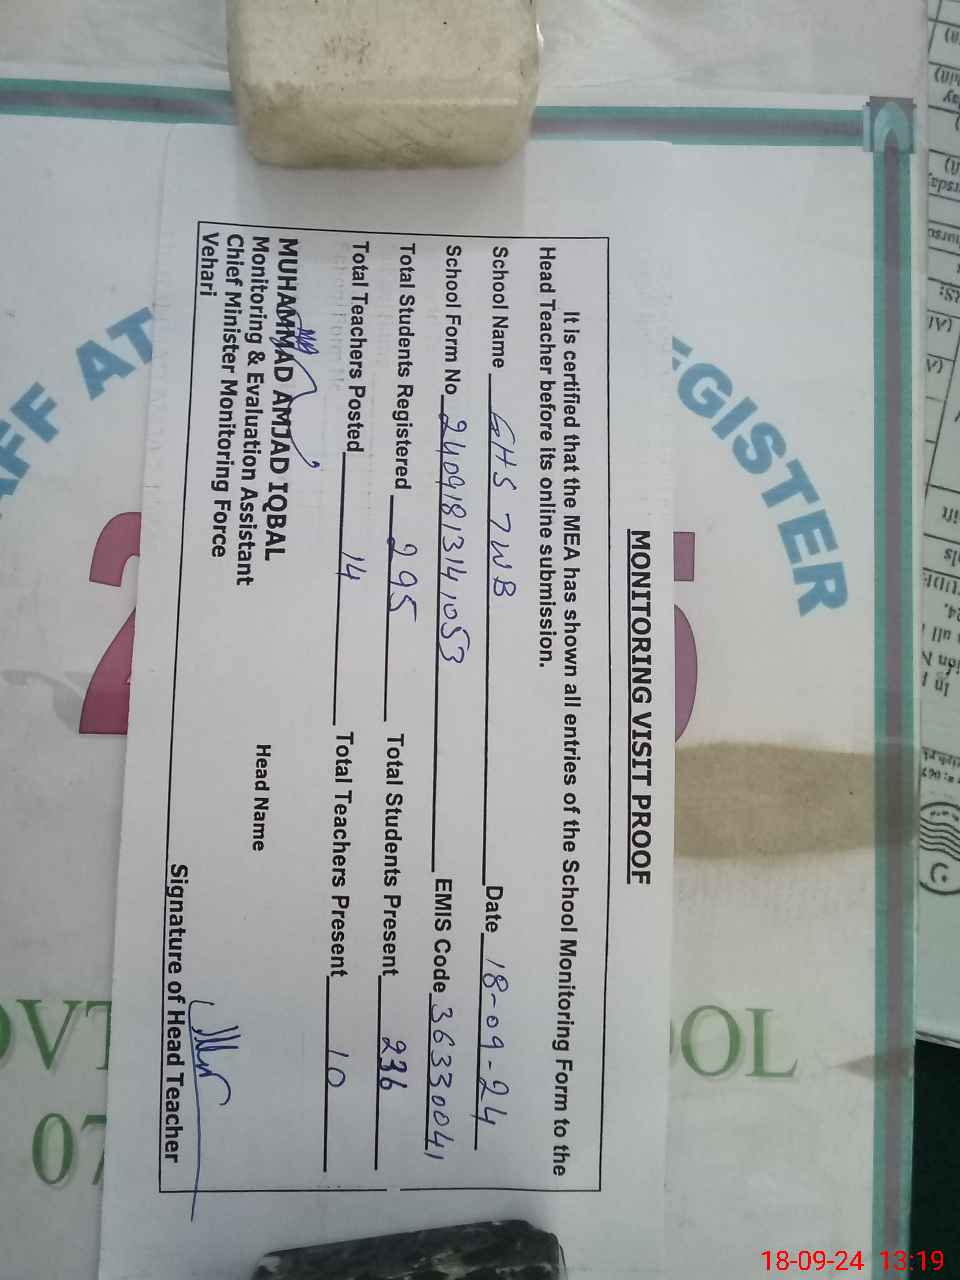 MONITORING VISIT PROOF
It is certified that the MEA has shown all entries of the School Monitoring Form to the
Head Teacher before its online submission.
School Name GHS 7WB Date 18-09-24
School Form No 24091813141053 EMIS Code 36330041
Total Students Registered 295 Total Students Present 236
Total Teachers Posted 14 Total Teachers Present 10
MUHAMMAD AMJAD IQBAL
Monitoring & Evaluation Assistant Head Name
Chief Minister Monitoring Force
Vehari
Signature of Head Teacher
18-09-24 13:19